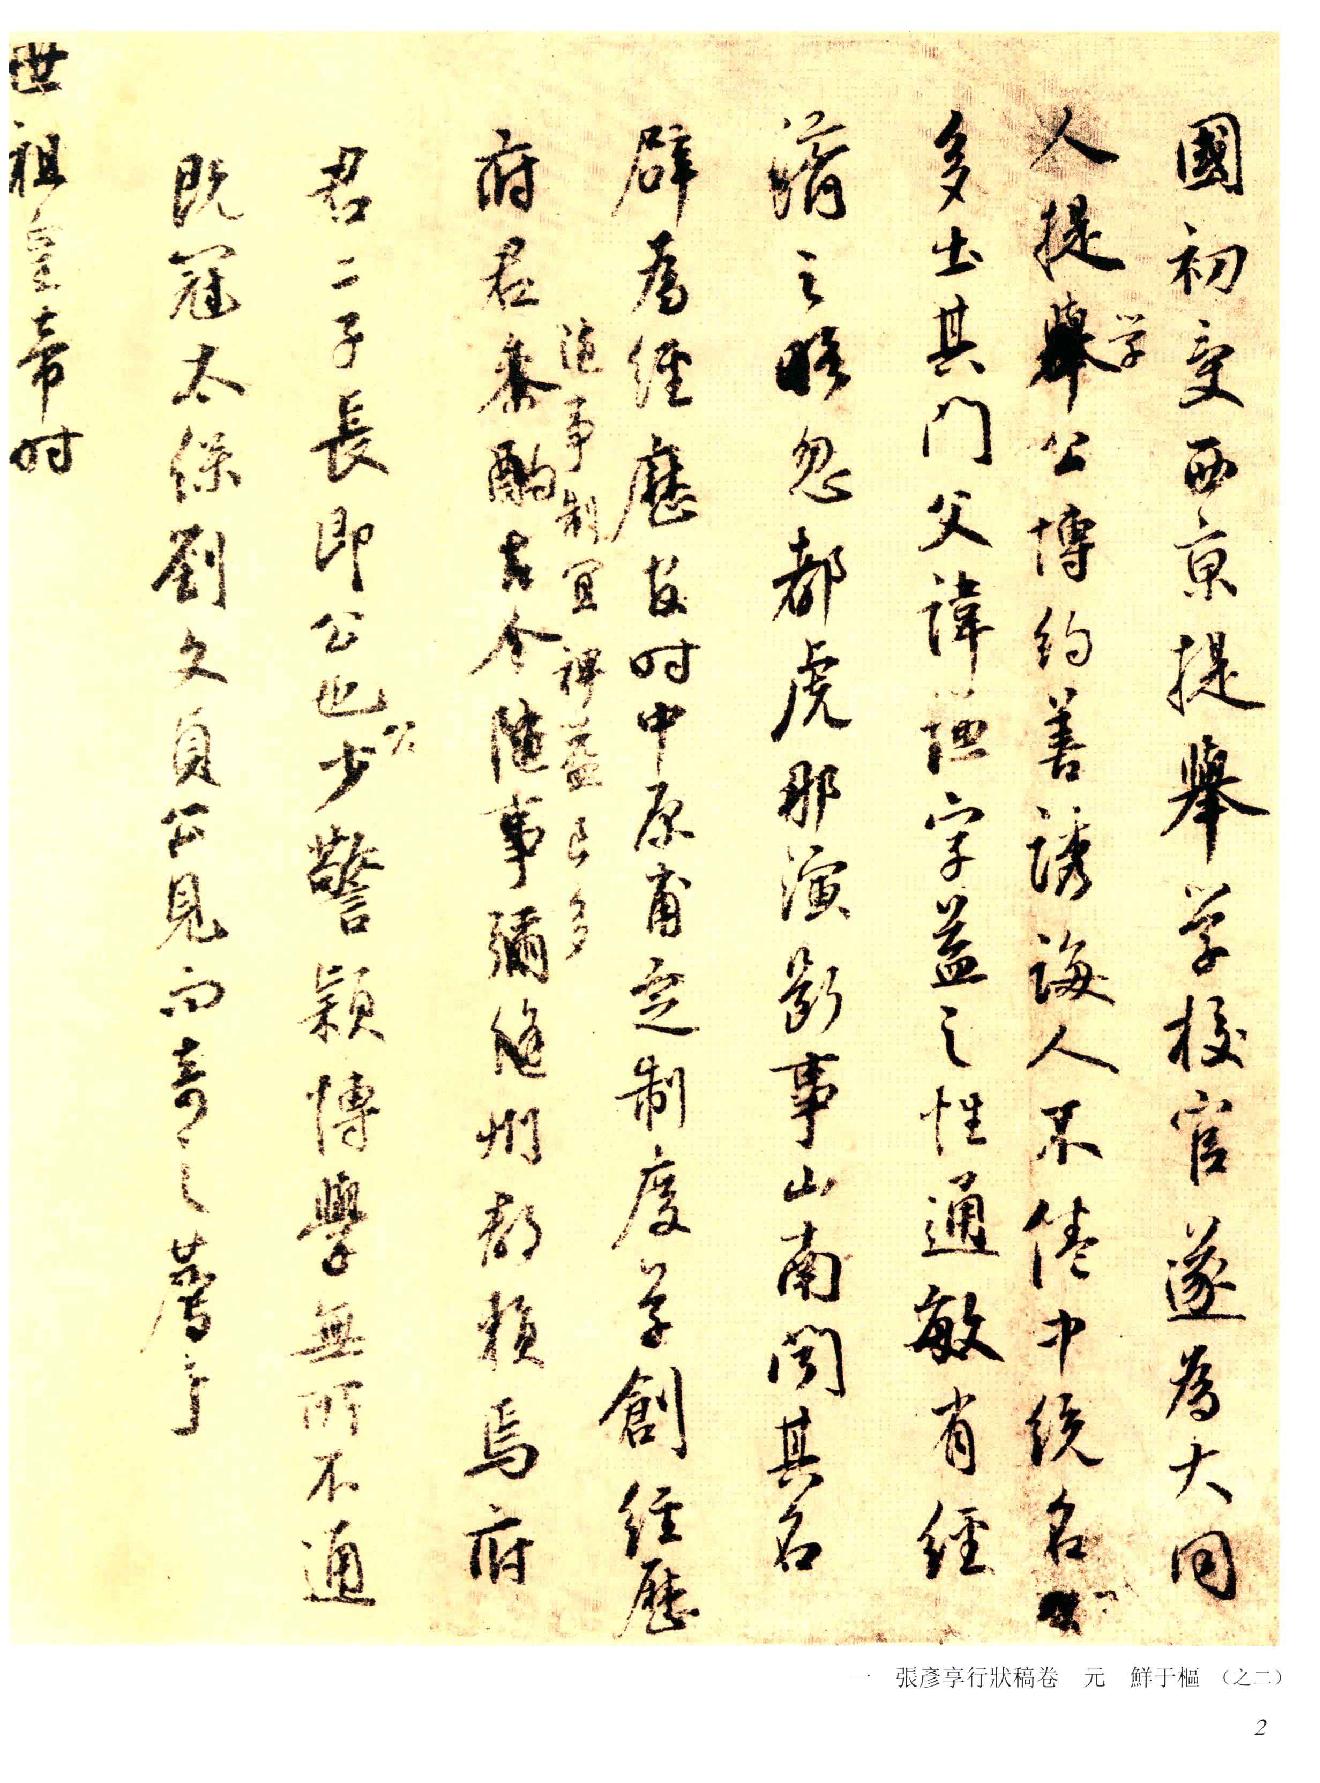 國初受西京提舉学校官遂為大同
人提舉学公博約善誘誨人不倦中統名
多出其門父諱謙字益之性通敏有經
濟之略忽都虎那演斷事山南聞其名
辟為經歷官时中原甫定制度草創經歷
府君參酌古今隨事彌縫州郡賴焉府
隨事制宜裨益良多
君二子長即公也公少警穎博學無所不通
既冠太保劉文貞公見而奇之薦于
世祖皇帝时
一 張彥享行狀稿卷 元 鮮于樞 （之二）
2